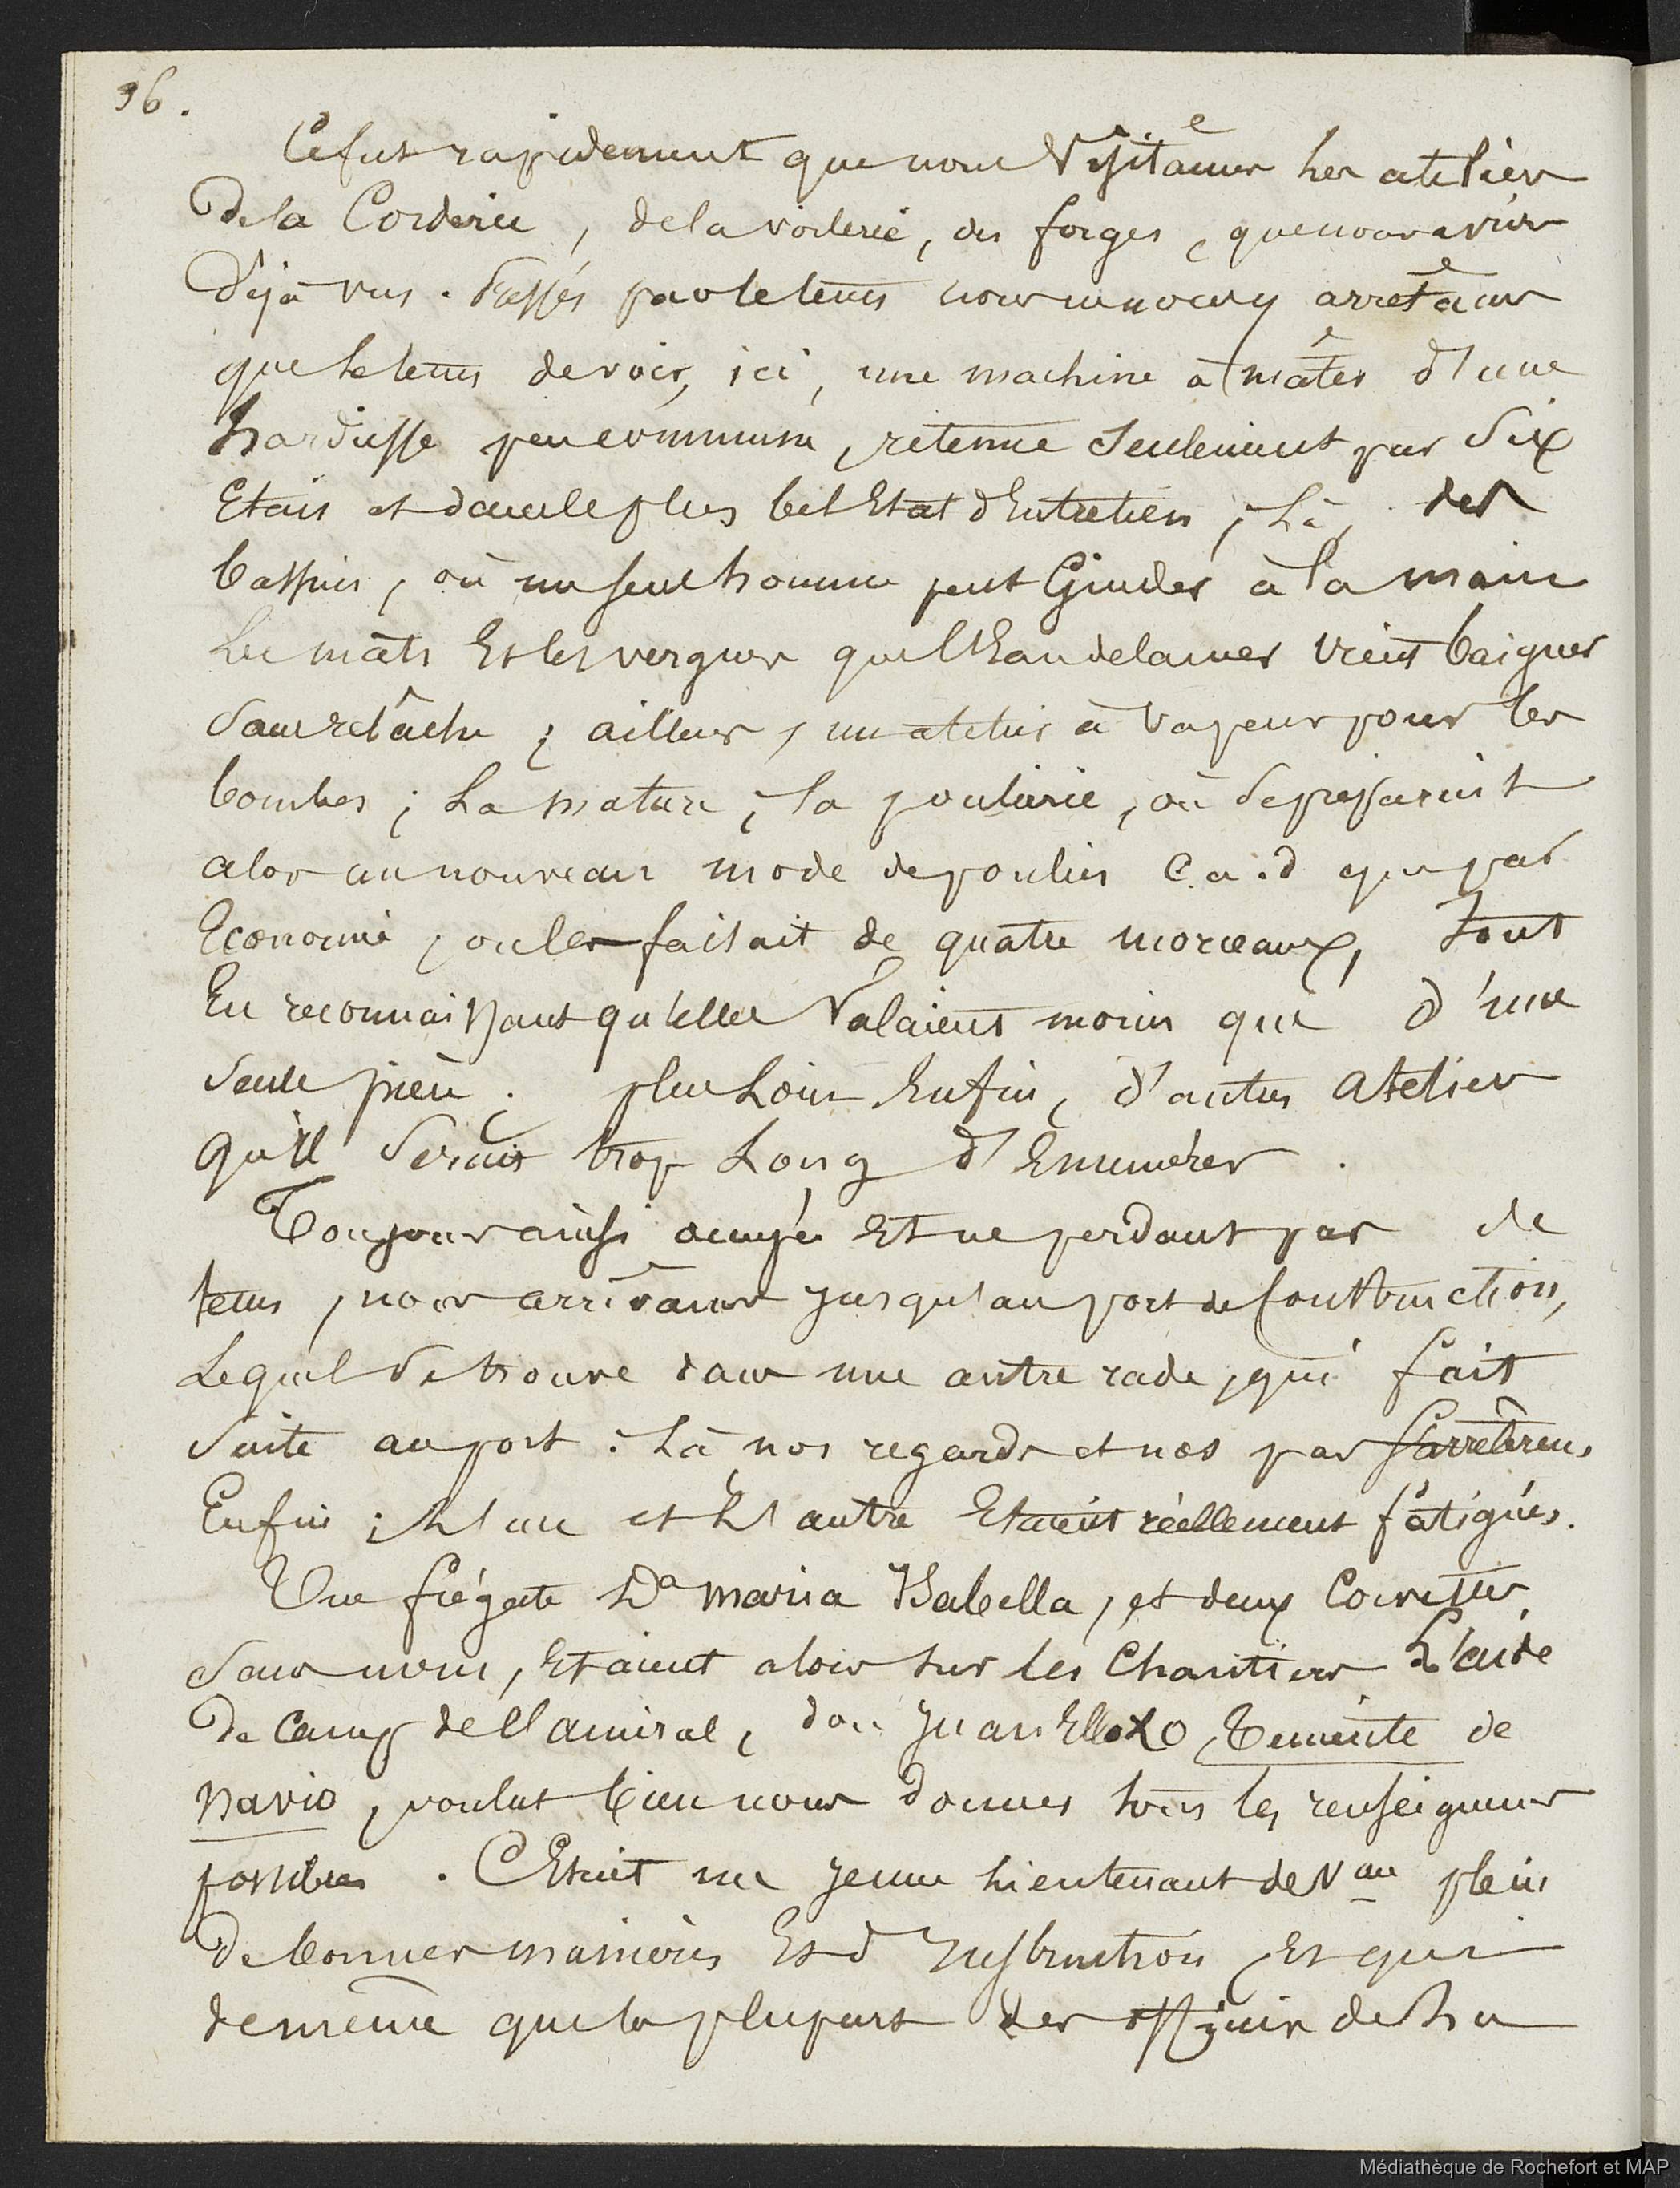 96.
Ce fut rapidement que nous Visitames les atelièrs
De la Corderie, de la voilerie, des forges, que nous avions
Déjà vus. Pressés par le tems nous ne nous y arretames
que le tems de voir, ici, une machine à mâter d'une
hardiesse peu commune, retenue seulement par Six
Etais et dans le plus bel Etat d'Entretien; là, des
bassins, où un seul homme peut Guider à la main
Les mâts Et les vergues que l'Eau de la mer vient baigner
Sans relâche; ailleurs, un atelier à vapeur pour les
bombes; La mature; la poulierie, où Se préparait
alors un nouveau mode de poulies C.a.d que par
Economie, on les faisait de quatre morceaux, tout
En reconnaissant qu'elles Valaient moins que d'une
Seule pièce. plus Loin Enfin, d'autres Ateliers
qu'il Serait trop Long d'Enumérer.
Toujours ainsi occupés Et ne perdant pas de
tems, nous arrivames jusqu'au port de Construction,
Lequel Se trouve dans une autre rade, qui fait
Suite au port. Là nos regards et nos pas S'arrêterent
Enfin; L'un et L'autre Etaient réellement fatigués.
Une frégate Dª Maria Isabella, et deux Corvettes,
Sans nom, Etaient alors sur les Chantiers L'aide
De camp de l'amiral, don Juan Elloxo, Teniente de
Navio, voulut bien nous donner tous les renseignemens
possibles. C'Etait un jeune Lieutenant de Vau plein
De bonnes manières Et d'Instruction, Et qui
de même que la plupart des officiers de Sa